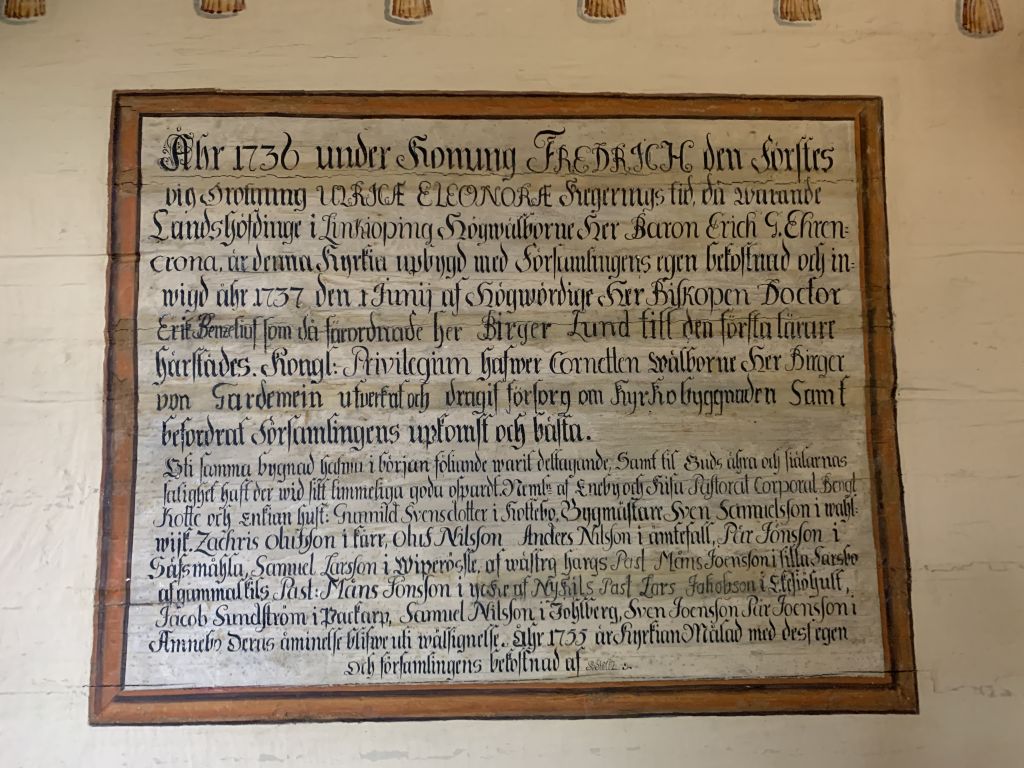 Åhr 1736 under Konung FREDRICH den Förstes
och Drotning ULRICÆ ELEONORÆ Regerings tid, då warande
Landshöfdinge i Linkiöping Högwälborne Her Baron Erich G. Ehren=
crona, är denna Kyrkia upbygd med Församlingens egen bekostnad och in=
wigd åhr 1737 den 1 Junij af Högwördige Her Biskopen Doctor
Erik Benzelius som då förordnade her Birger Lund till den första lärare
härstädes. Kongl: Privilegium hafwer Cornetten Wälborne Her Birger
von Gardemein utverkat och dragit försorg om Kyrkobyggnaden Samt
befordrat Församlingens upkomst och bästa.
Uti samma bygnad hafwa i början föliande warit deltagande, Samt til Guds ähra och siälarnas
salighet haft der wid sitt timmeliga goda ospardt. Neml: af Eneby och Kisa Pastorat Corporal Bengt
Kotte och Enkian hust: Gunnild Svensdotter i Kottebo, Bygmästare Sven Samuelsson i wahl=
wijk. Zachris Olufsson i kärr, Oluf Nilsson Anders Nilsson i ämtefall, Pär Jönsson i
Såfsmåhla, Samuel Larsson i Wiperösle, af wästra hargs Past Måns Joensson i lilla Farsbo
af gammalkils Past: Måns Jönsson i ycke af Nykils Past Lars Jahobson i Elgiöhult,
Jacob Sundström i Packarp, Samuel Nilsson i Fohlberg, Sven Joensson Pär Joensson i
Amnebo Deras åminelse blifwe uti wälsignelse. Åhr 1755 är Kyrkian Målad med dess egen
och församlingens bekostnad af